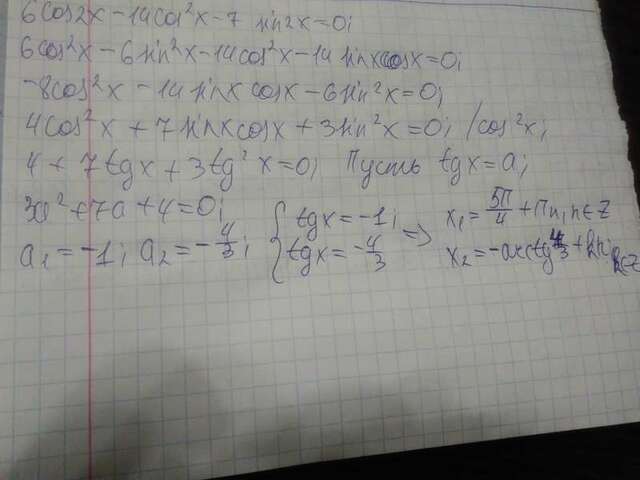 6cos2x-14cos²x-7 sin2x=0;
6cos²x-6sin²x-14cos²x-14 sinxcosx=0;
-8cos²x-14sinx cosx-6sin²x=0;
4cos²x+7sinxcosx+3sin²x=0; /cos²x;
4+7tgx+3tg²x=0; Пусть tgx=a;
3a²+7a+4=0; { tgx=-1; => x₁=5π/4+πn, n∈Z
a₁=-1; a₂=-4/3; { tgx=-4/3 x₂=-arctg4/3+πn; n∈Z